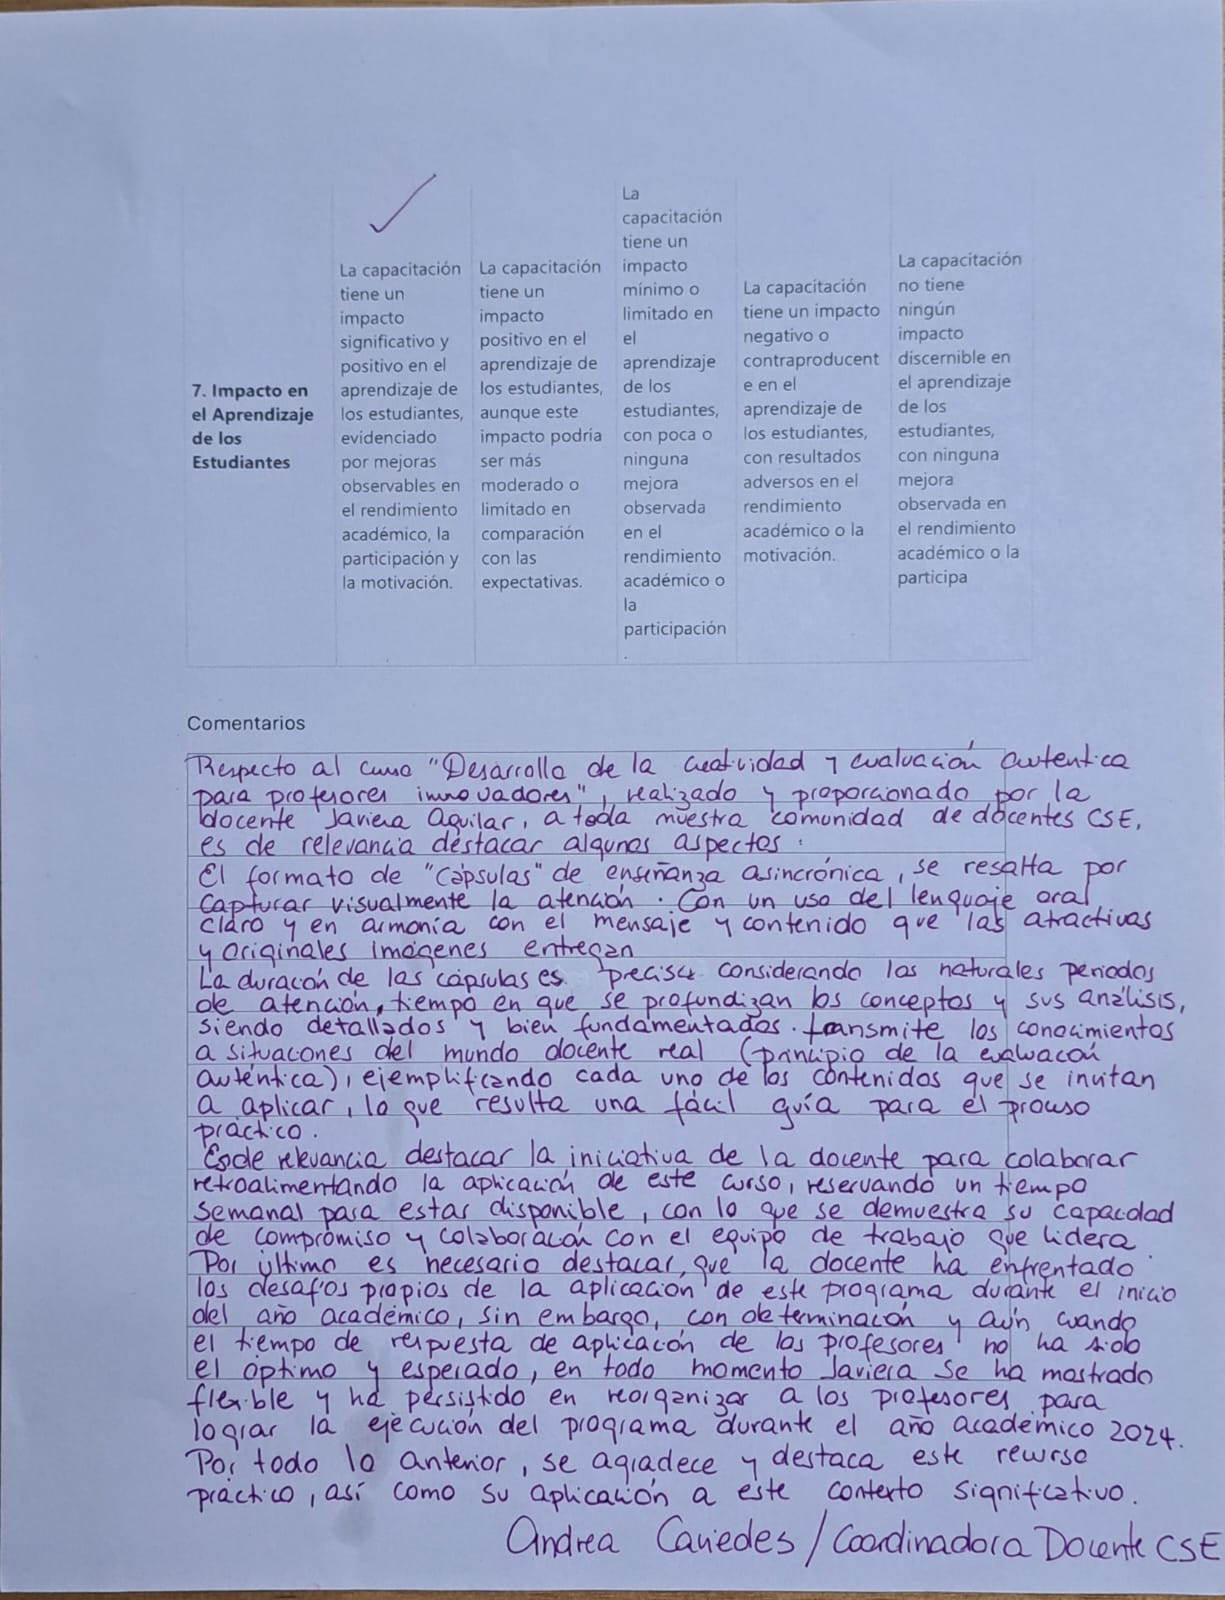 7. Impacto en
el Aprendizaje
de los
Estudiantes
La capacitación
tiene un
impacto
significativo y
positivo en el
aprendizaje de
los estudiantes,
evidenciado
por mejoras
observables en
el rendimiento
académico, la
participación y
la motivación.
La capacitación
tiene un
impacto
positivo en el
aprendizaje de
los estudiantes,
aunque este
impacto podría
ser más
moderado o
limitado en
comparación
con las
expectativas.
La
capacitación
tiene un
impacto
mínimo o
limitado en
el
aprendizaje
de los
estudiantes,
con poca o
ninguna
mejora
observada
en el
rendimiento
académico o
la
participación
.
La capacitación
tiene un impacto
negativo o
contraproducent
e en el
aprendizaje de
los estudiantes,
con resultados
adversos en el
rendimiento
académico o la
motivación.
La capacitación
no tiene
ningún
impacto
discernible en
el aprendizaje
de los
estudiantes,
con ninguna
mejora
observada en
el rendimiento
académico o la
participa
Comentarios
Respecto al curso "Desarrollo de la creatividad y evaluación auténtica
para profesores innovadores", realizado y proporcionado por la
docente Javiera Aguilar, a toda nuestra comunidad de docentes CSE,
es de relevancia destacar algunos aspectos.
El formato de "cápsulas" de enseñanza asincrónica, se resalta por
capturar visualmente la atención. Con un uso del lenguaje oral
claro y en armonía con el mensaje y contenido que las atractivas
y originales imágenes entregan
La duración de las cápsulas es precisa considerando los naturales periodos
de atención, tiempo en que se profundizan los conceptos y sus análisis,
siendo detallados y bien fundamentados. transmite los conocimientos
a situaciones del mundo docente real (principio de la evaluación
auténtica), ejemplificando cada uno de los contenidos que se invitan
a aplicar, lo que resulta una fácil guía para el proceso
práctico.
Es de relevancia destacar la iniciativa de la docente para colaborar
retroalimentando la aplicación de este curso, reservando un tiempo
semanal para estar disponible, con lo que se demuestra su capacidad
de compromiso y colaboración con el equipo de trabajo que lidera.
Por último es necesario destacar, que la docente ha enfrentado
los desafíos propios de la aplicación de este programa durante el inicio
del año académico, sin embargo, con determinación y aún cuando
el tiempo de respuesta de aplicación de los profesores no ha sido
el óptimo y esperado, en todo momento Javiera se ha mostrado
flexible y ha persistido en reorganizar a los profesores para
lograr la ejecución del programa durante el año académico 2024.
Por todo lo anterior, se agradece y destaca este recurso
práctico, así como su aplicación a este contexto significativo.
Andrea Caviedes / Coordinadora Docente CSE